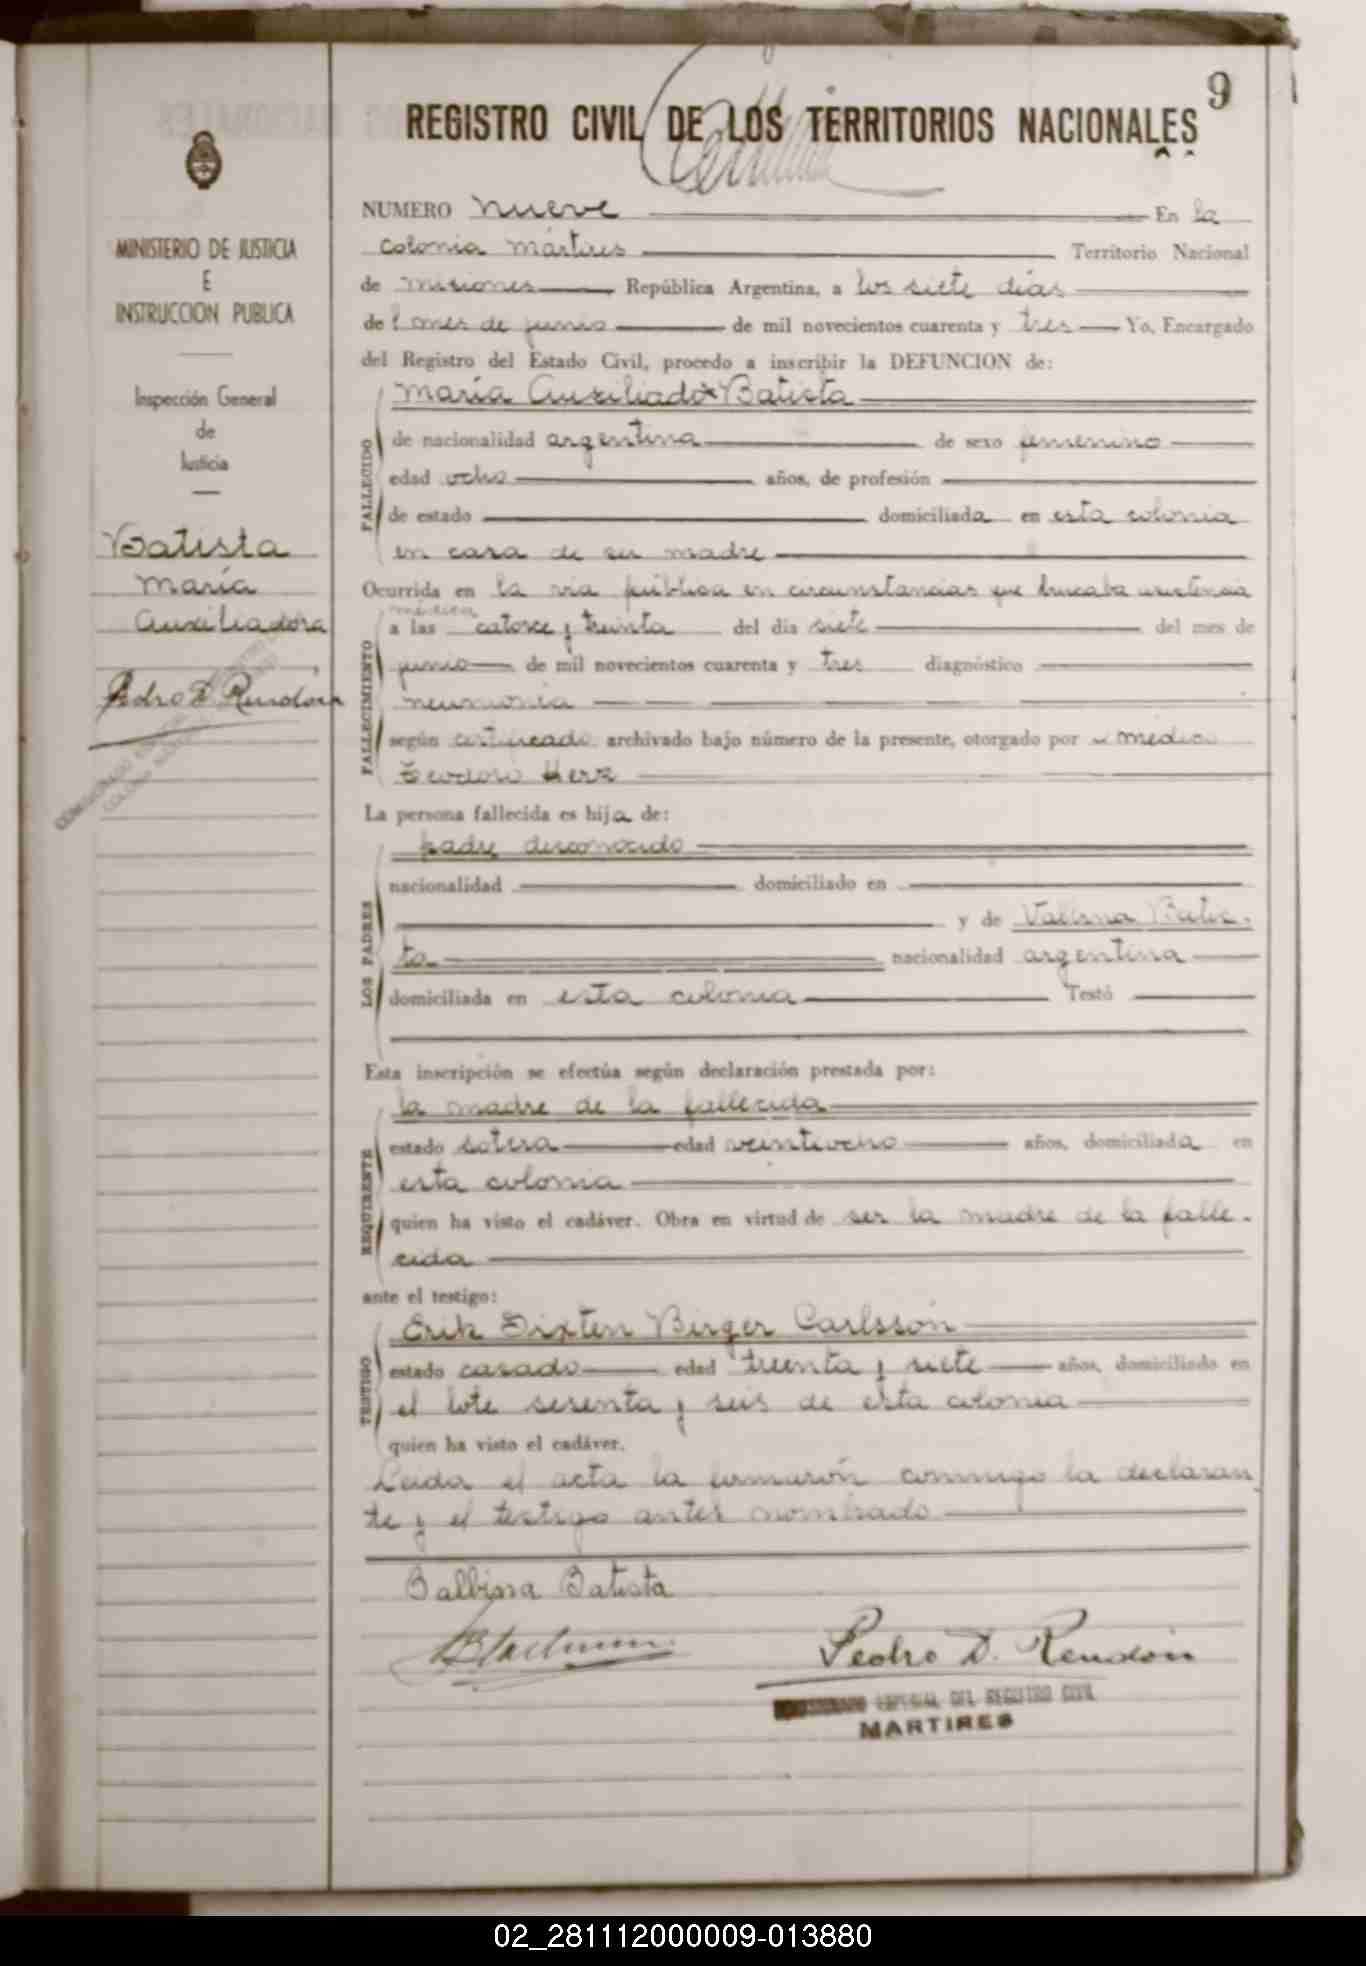 9
REGISTRO CIVIL DE LOS TERRITORIOS NACIONALES
MINISTERIO DE JUSTICIA
E
INSTRUCCION PUBLICA
Inspección General
de
Justicia
Batista
María
Auxiliadora
Pedro D. Rendón
NUMERO nueve En la
colonia mártires Territorio Nacional
de misiones República Argentina, a los siete días
del mes de junio de mil novecientos cuarenta y tres Yo, Encargado
del Registro del Estado Civil, procedo a inscribir la DEFUNCION de:
FALLECIDO
María Auxiliadora Batista
de nacionalidad argentina de sexo femenino
edad ocho años, de profesión
de estado domiciliada en esta colonia
en casa de su madre
Ocurrida en la vía pública en circunstancias que buscaba asistencia
médica
FALLECIMIENTO
a las catorce y treinta del día siete del mes de
junio de mil novecientos cuarenta y tres diagnóstico
neumonía
según certificado archivado bajo número de la presente, otorgado por médico
Teodoro Herz
La persona fallecida es hija de:
LOS PADRES
padre desconocido
nacionalidad domiciliado en
y de Valbina Batis-
ta nacionalidad argentina
domiciliada en esta colonia Testó
Esta inscripción se efectúa según declaración prestada por:
REQUIRENTE
la madre de la fallecida
estado soltera edad veintiocho años, domiciliada en
esta colonia
quien ha visto el cadáver. Obra en virtud de ser la madre de la falle-
cida
ante el testigo:
TESTIGO
Erik Sixten Birger Carlsson
estado casado edad treinta y siete años, domiciliado en
el lote sesenta y seis de esta colonia
quien ha visto el cadáver.
Leida el acta la firmaron conmigo la declaran
te y el testigo antes nombrado
Balbina Batista
Pedro D. Rendón
ESPECIAL DEL REGISTRO CIVIL
MARTIRES
02_281112000009-013880